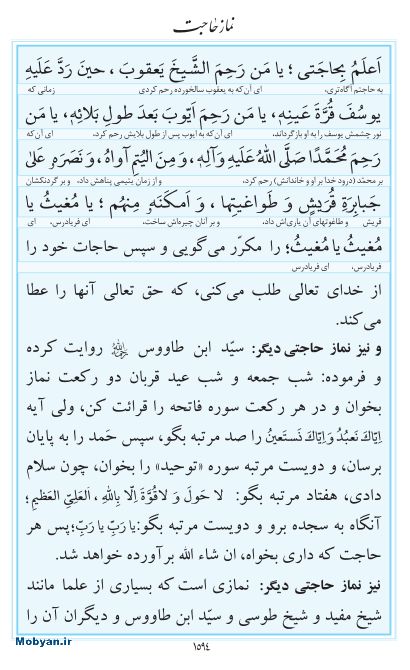 نماز حاجت
اَعلَمُ بِحاجَتی؛ یا مَن رَحِمَ الشَّیخَ یَعقوبَ، حینَ رَدَّ عَلَیهِ
به حاجتم آگاه‌تری، ای آن‌که به یعقوب سالخورده رحم کردی زمانی که
یوسُفَ قُرَّةَ عَینِهِ، یا مَن رَحِمَ اَیّوبَ بَعدَ طولِ بَلائِهِ، یا مَن
نور چشمش یوسف را به او بازگرداند، ای آن‌که به ایوب پس از طول بلایش رحم کرد، ای آن‌که
رَحِمَ مُحَمَّدًا صَلَّی اللهُ عَلَیهِ وَآلِهِ، وَمِنَ الیُتمِ آواهُ، وَ نَصَرَهُ عَلیٰ
بر محمّد (درود خدا بر او و خاندانش) رحم کرد، و از زمان یتیمی پناهش داد، و بر گردنکشان
جَبابِرَةِ قُرَیشٍ وَ طَواغیتِها، وَ اَمکَنَهُ مِنهُم؛ یا مُغیثُ یا
قریش و طاغوتهای آن یاری‌اش داد، و بر آنان چیره‌اش ساخت، ای فریادرس، ای
مُغیثُ یا مُغیثُ؛ را مکرّر می‌گویی و سپس حاجات خود را
فریادرس، ای فریادرس
از خدای تعالی طلب می‌کنی، که حق تعالی آنها را عطا
می‌کند.
و نیز نماز حاجتی دیگر: سیّد ابن طاووس رحمه‌الله روایت کرده
و فرموده: شب جمعه و شب عید قربان دو رکعت نماز
بخوان و در هر رکعت سوره فاتحه را قرائت کن، ولی آیه
اِیّاکَ نَعبُدُ وَ اِیّاکَ نَستَعینُ را صد مرتبه بگو، سپس حَمد را به پایان
برسان، و دویست مرتبه سوره «توحید» را بخوان، چون سلام
دادی، هفتاد مرتبه بگو: لا حَولَ وَ لاقُوَّةَ اِلّا بِاللهِ، اَلعَلِیِّ العَظیمِ؛
آنگاه به سجده برو و دویست مرتبه بگو: یا رَبِّ یا رَبِّ؛ پس هر
حاجت که داری بخواه، ان شاء الله برآورده خواهد شد.
نیز نماز حاجتی دیگر: نمازی است که بسیاری از علما مانند
شیخ مفید و شیخ طوسی و سیّد ابن طاووس و دیگران آن را
Mobyan.ir
۱۵۹۴